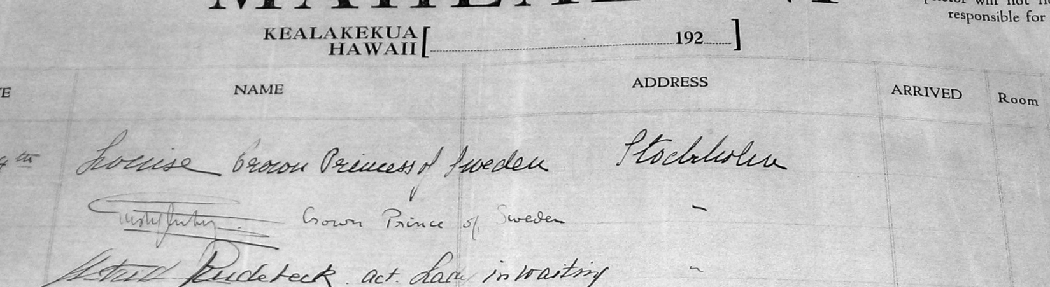 will not
responsible for
KEALAKEKUA
HAWAII [ 192 ]
E NAME ADDRESS ARRIVED Room
4th Louise Crown Princess of Sweden Stockholm
Crown Prince of Sweden "
Astrid Rudebeck act. Lady in waiting "